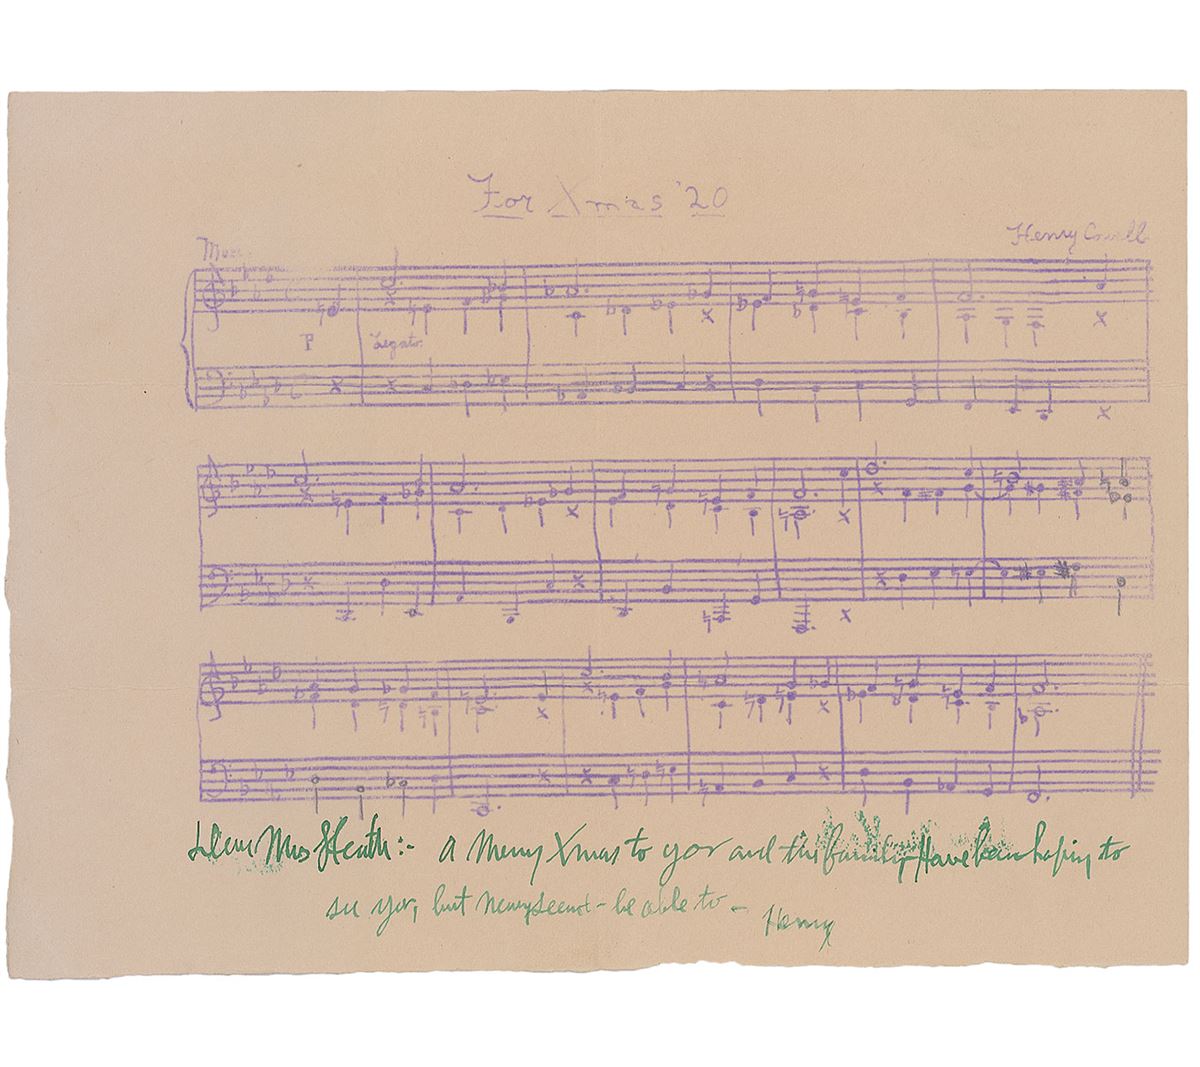 For Xmas '20
Henry Cowell
P
Legato.
Dear Mrs Heath:- A Merry Xmas to you and the family. Have been hoping to
see you, but never seem to be able to - Henry